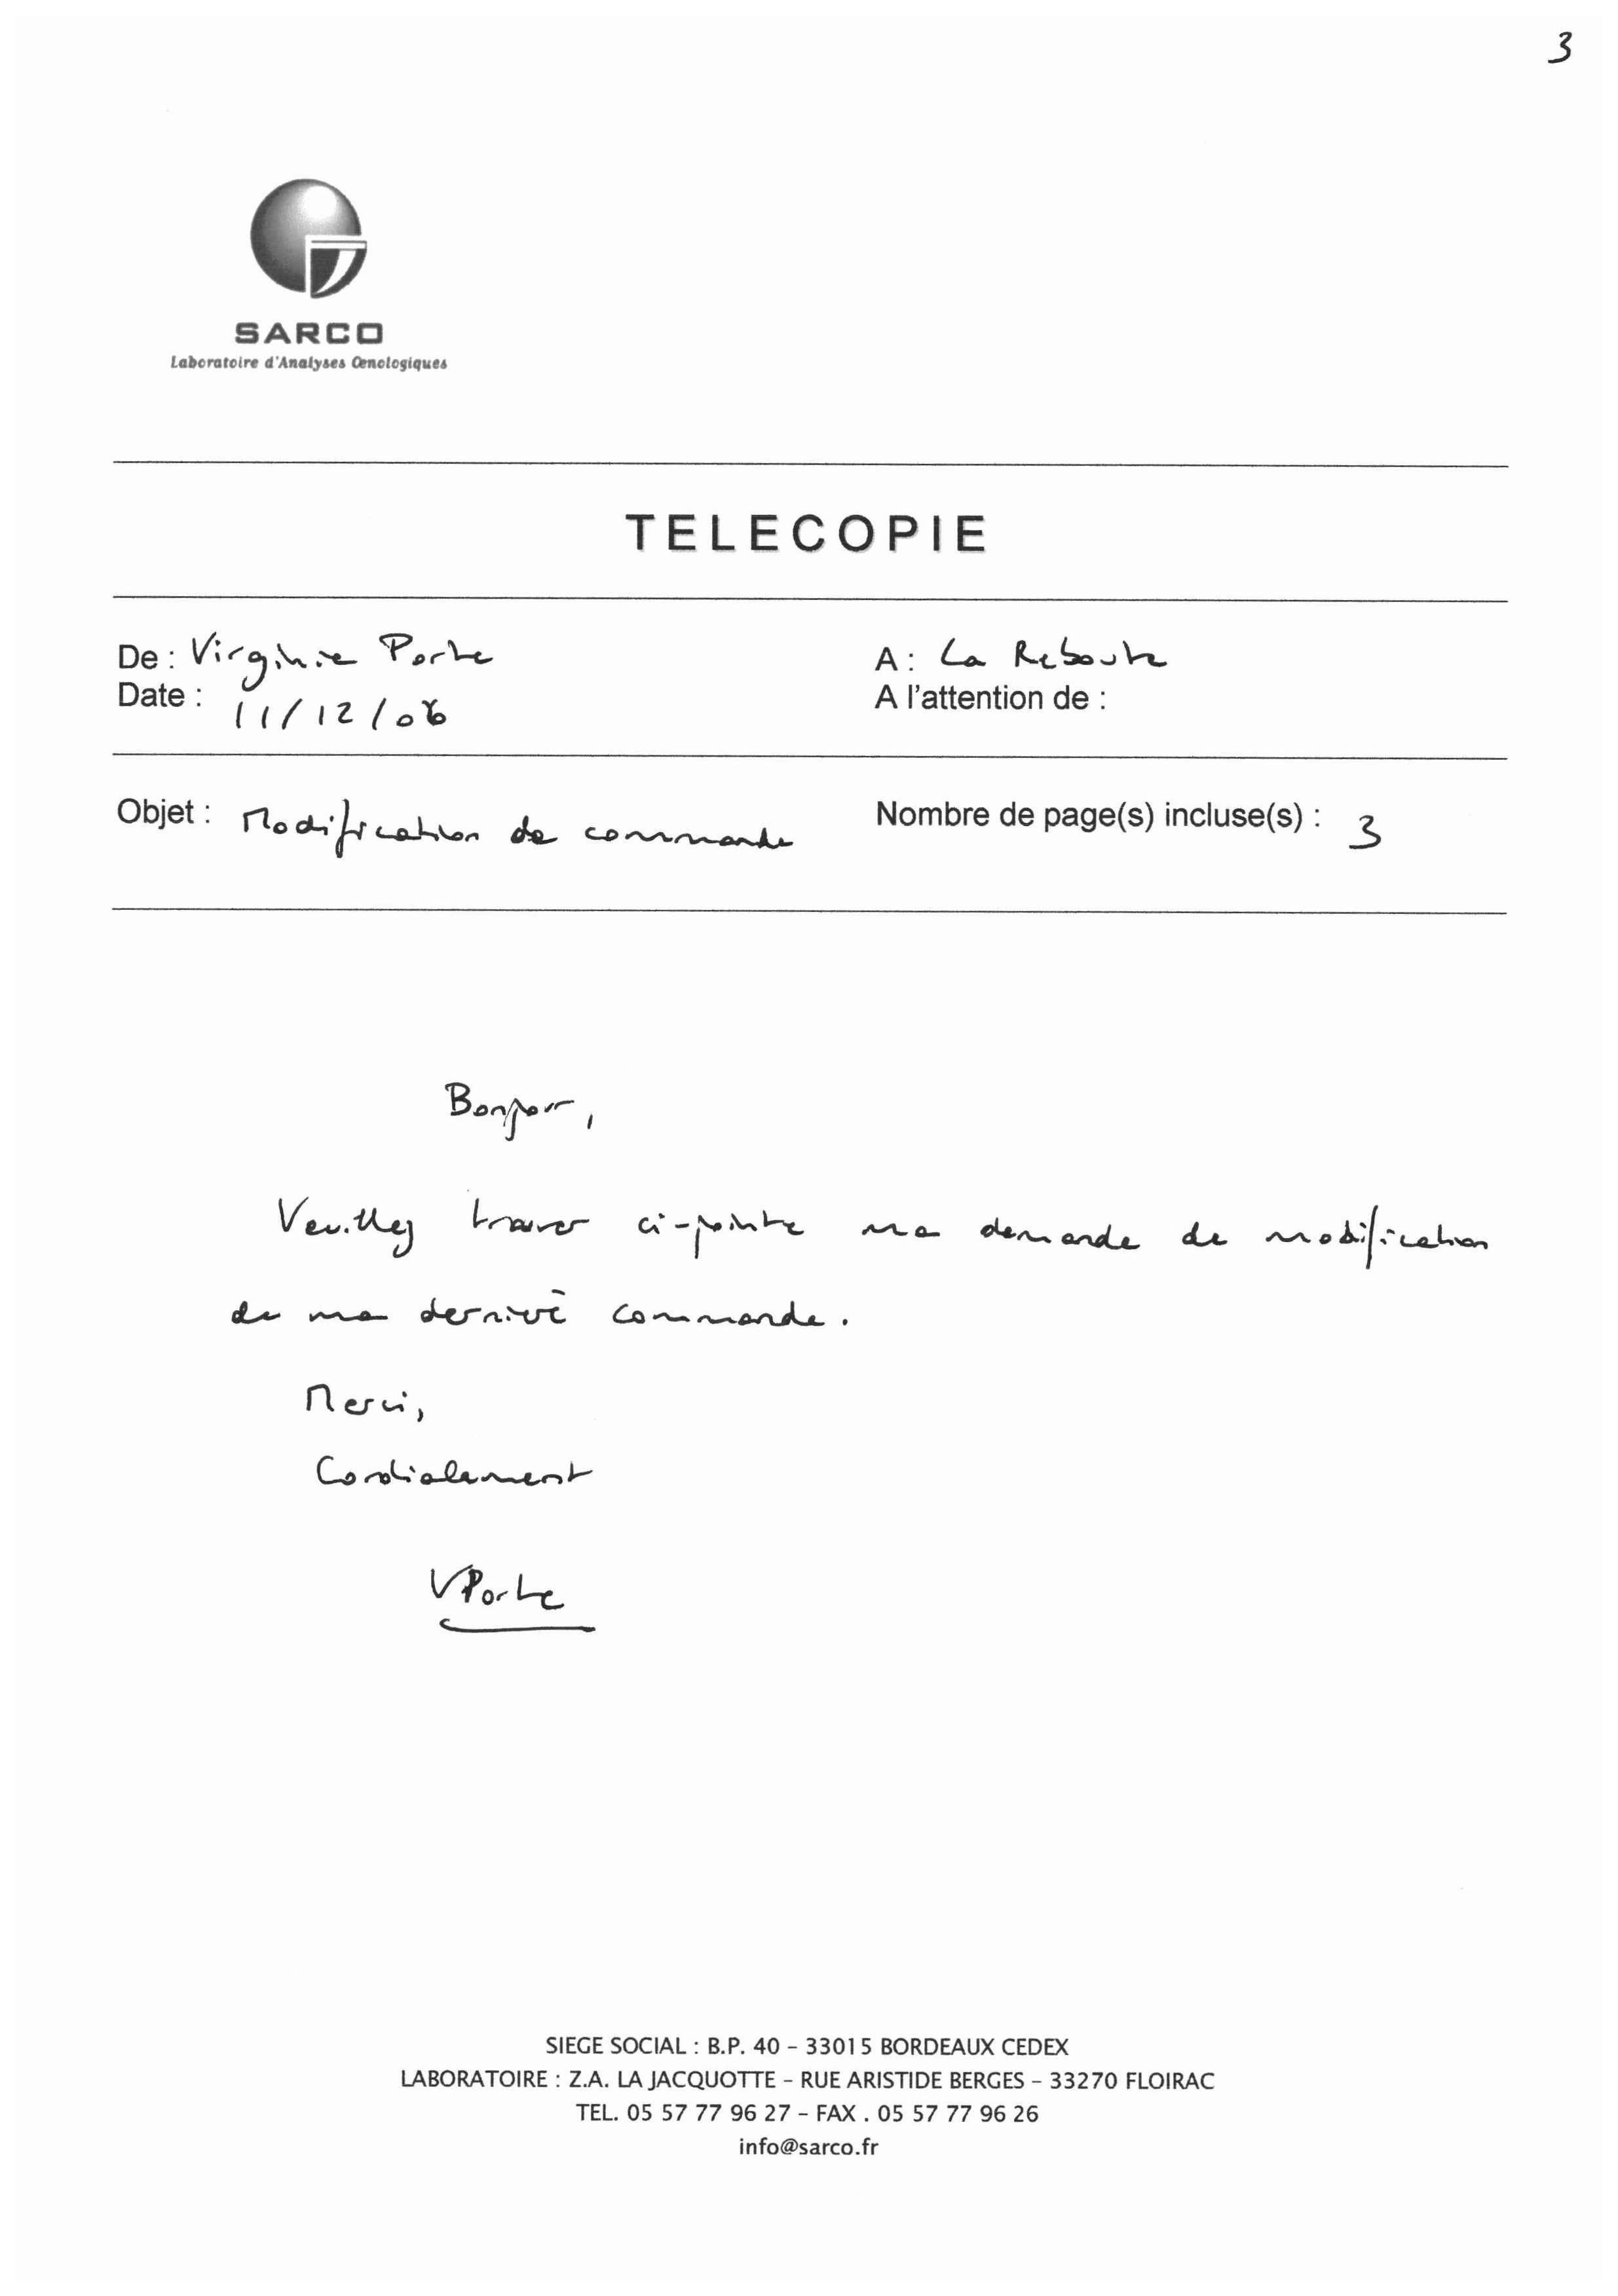 3
SARCO
Laboratoire d'Analyses Œnologiques
TELECOPIE
De : Virginie Porte
A : La Reboute
Date : 11/12/06
A l'attention de :
Objet : Modification de commande
Nombre de page(s) incluse(s) : 3
Bonjour,
Veuillez trouver ci-jointe ma demande de modification
de ma dernière commande.
Merci,
Cordialement
VPorte
SIEGE SOCIAL : B.P. 40 – 33015 BORDEAUX CEDEX
LABORATOIRE : Z.A. LA JACQUOTTE – RUE ARISTIDE BERGES – 33270 FLOIRAC
TEL. 05 57 77 96 27 – FAX . 05 57 77 96 26
info@sarco.fr